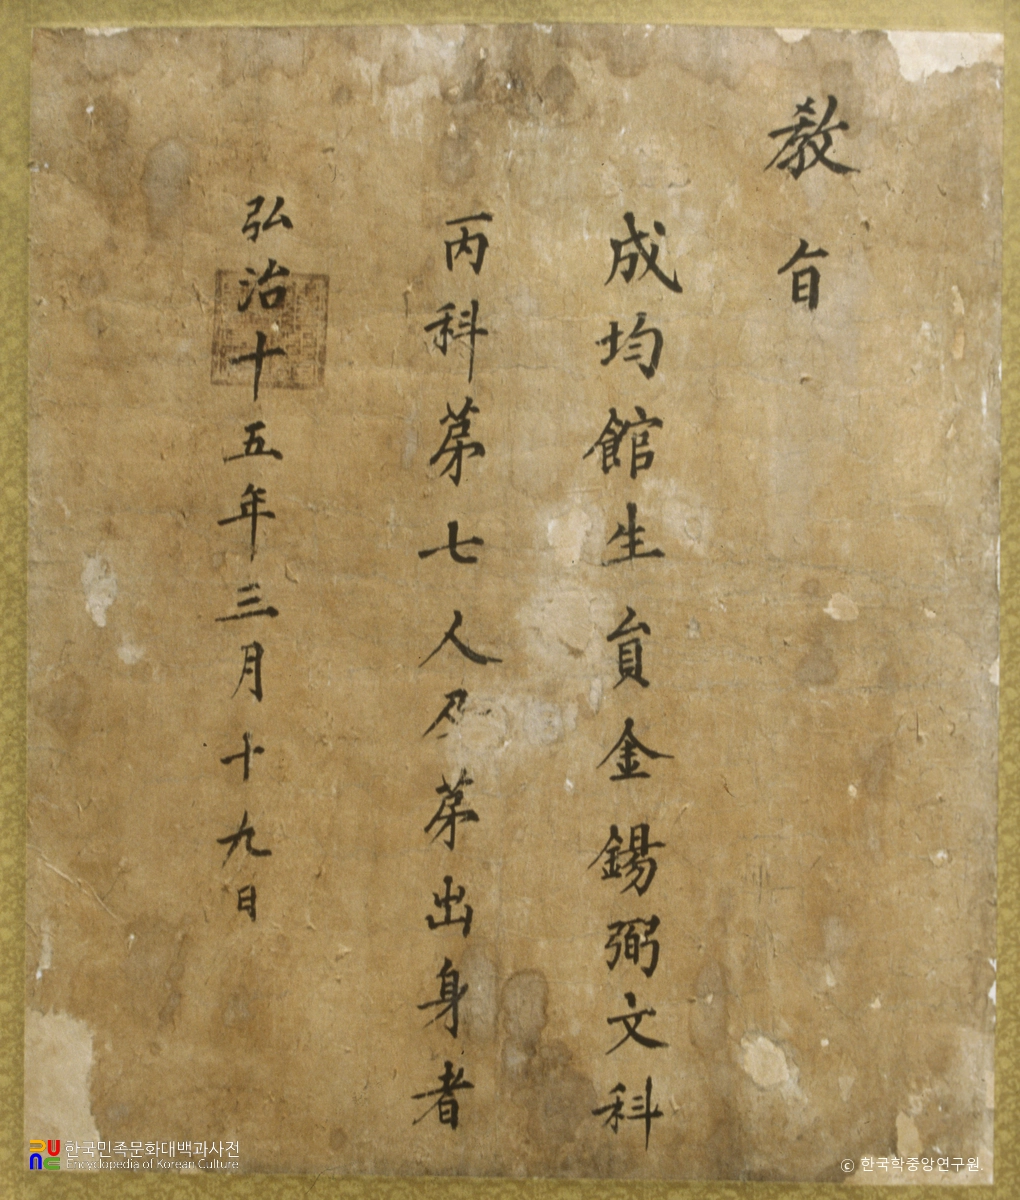 教㫖
成均館生貟金錫弼文科
丙科第七人及第出身者
弘治十五年三月十九日
한국민족문화대백과사전
Encyclopedia of Korean Culture
© 한국학중앙연구원.